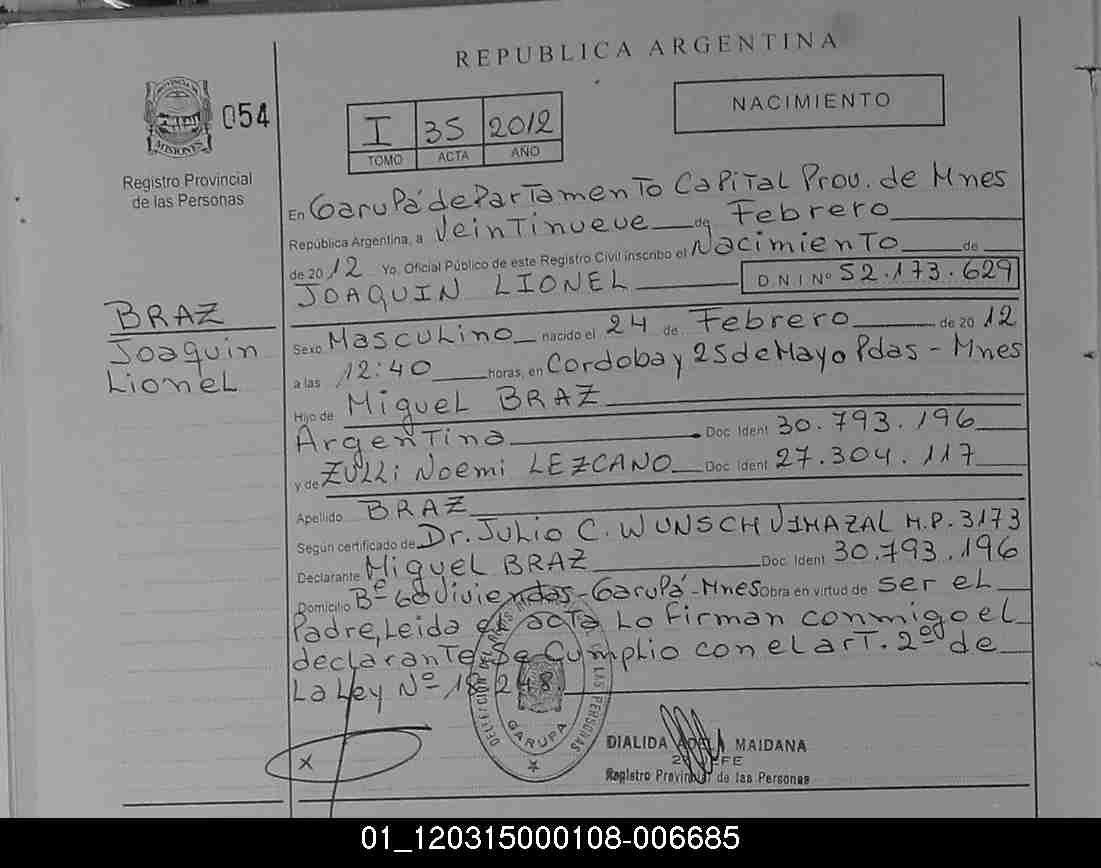 REPUBLICA ARGENTINA
PROVINCIA DE MISIONES
054
Registro Provincial
de las Personas
I 35 2012
TOMO ACTA AÑO
NACIMIENTO
En Garupá departamento Capital Prov. de Mnes
República Argentina, a Veintinueve de Febrero
de 2012 Yo, Oficial Público de este Registro Civil inscribo el Nacimiento de
JOAQUIN LIONEL D.N.I Nº 52.173.629
BRAZ
Joaquin
Lionel
Sexo Masculino nacido el 24 de Febrero de 2012
a las 12:40 horas, en Cordoba y 25 de Mayo Pdas - Mnes
Hijo de Miguel BRAZ
Argentina Doc Ident 30.793.196
y de ZULLI Noemi LEZCANO Doc Ident 27.304.117
Apellido BRAZ
Según certificado de Dr. Julio C. WUNSCH M.P. 3173
Declarante Miguel BRAZ Doc Ident 30.793.196
Domicilio Bº 60 Viviendas - Garupá - Mnes Obra en virtud de ser el
Padre, Leida el acta Lo firman conmigo el
declarante Se Cumplio con el art. 2º de
La Ley Nº 18.248
DELEGACION DEL REGISTRO PROVINCIAL DE LAS PERSONAS
GARUPA
x
DIALIDA MAIDANA
JEFE
Registro Provincial de las Personas
01_120315000108-006685